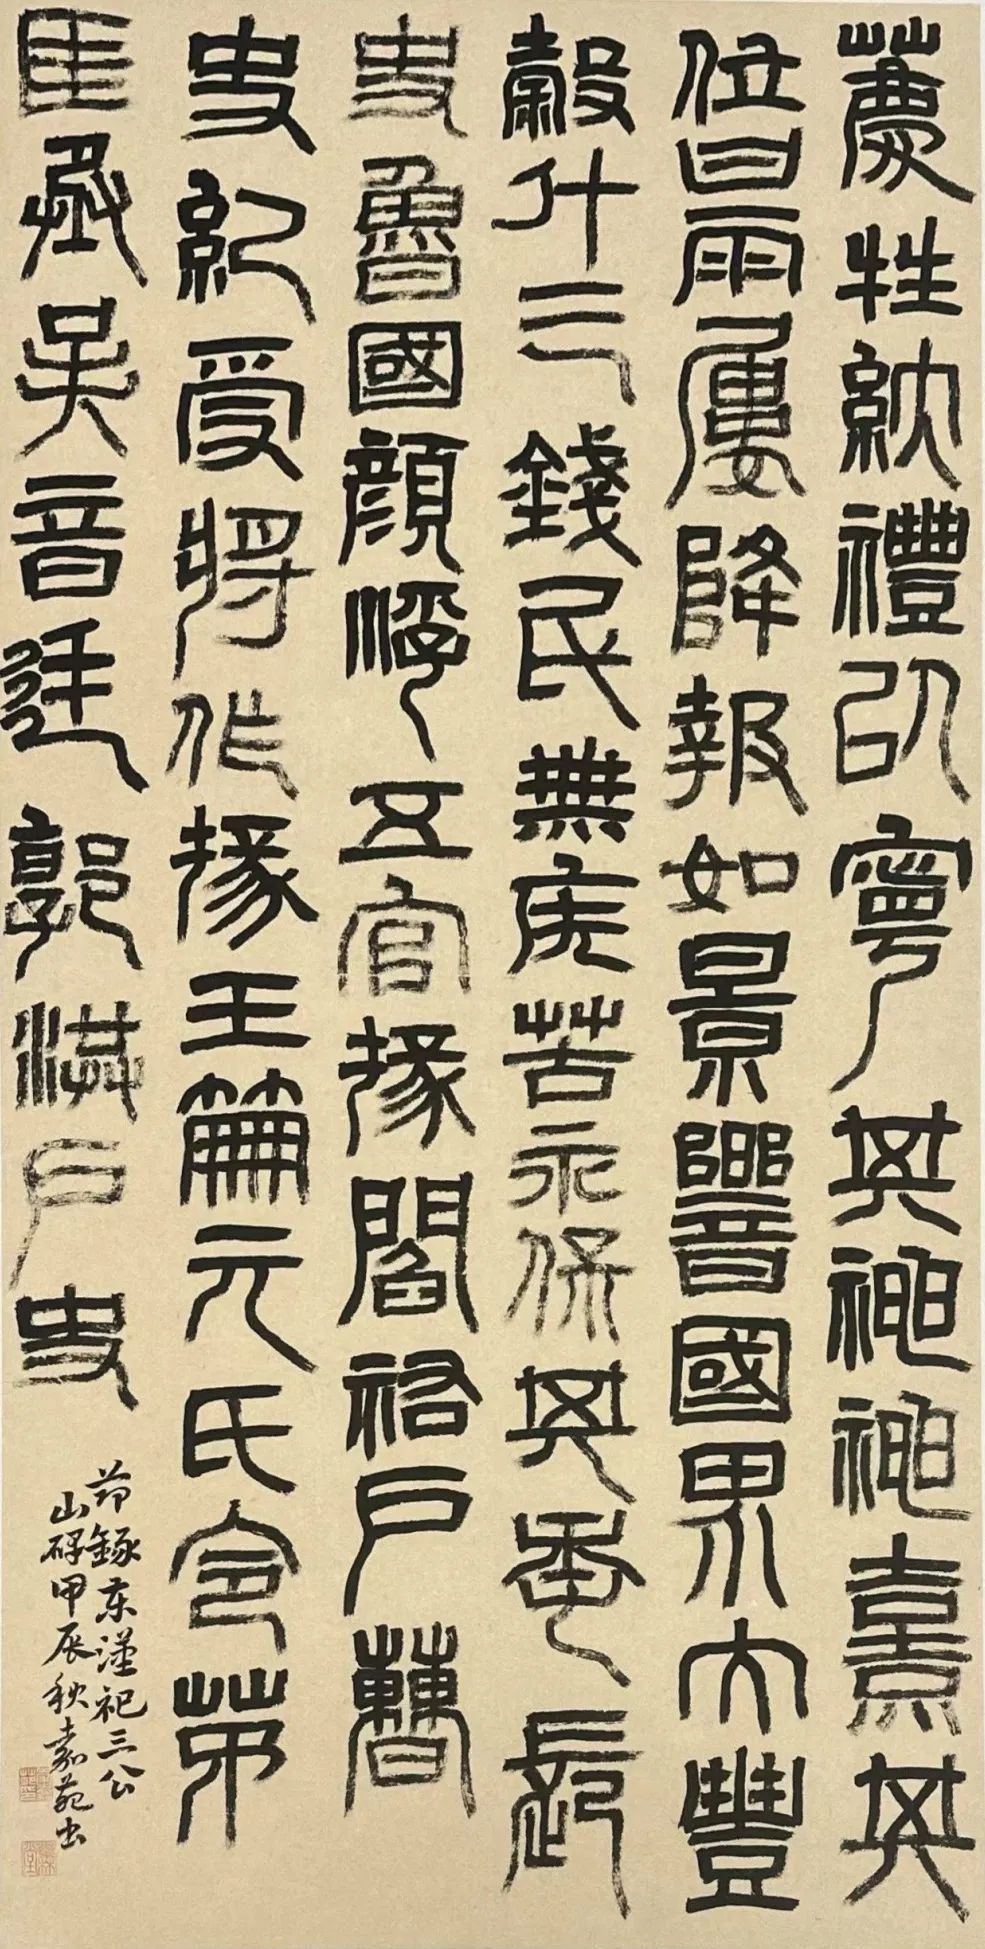 薦牲納禮以寧其神神熹其
位甘雨屢降報如景響國界大豐
穀什三錢民無疾苦永保其年長
史魯國顏浮五官掾閻祐戶曹
史紀受將作掾王笧元氏令茅
匡丞吴音廷郭洪戶史
节錄东漢祀三公
山碑甲辰秋嘉苑书